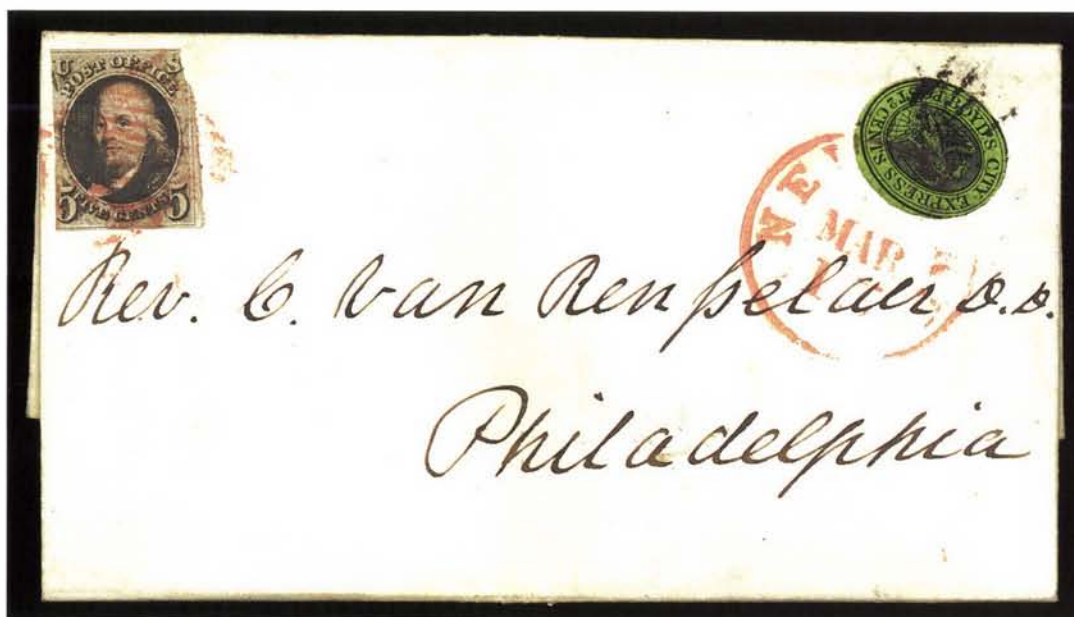 U S
POST OFFICE
5 FIVE CENTS 5
BOYD'S CITY EXPRESS POST 2 CENTS
MAR
Rev. C. Van Rensselaer D.D.
Philadelphia